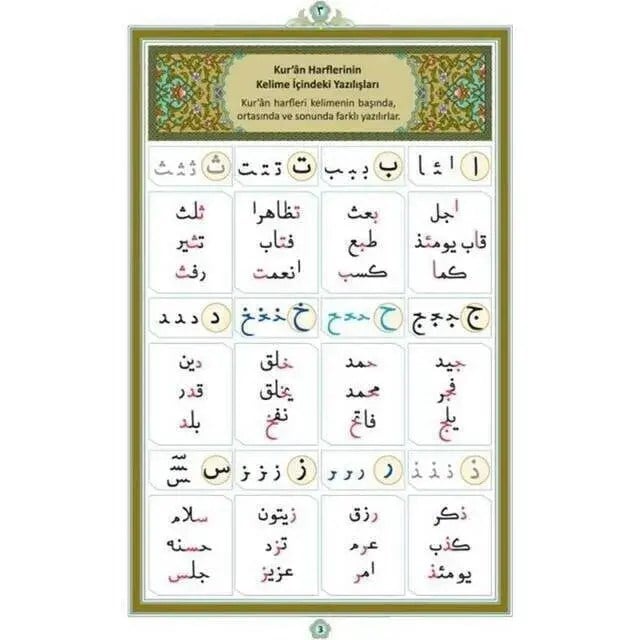 ٣
Kur'ân Harflerinin
Kelime İçindeki Yazılışları
Kur'ân harfleri kelimenin başında,
ortasında ve sonunda farklı yazılırlar.
ا ا ئـ ـا
ب بـ ـبـ ـب
ت تـ ـتـ ـت
ث ثـ ـثـ ـث
اجل
قاب يومئذ
كما
بعث
طبع
كسب
تظاهرا
فتاب
انعمت
ثلث
تثير
رفث
ج جـ ـجـ ـج
ح حـ ـحـ ـح
خ خـ ـخـ ـخ
د د ـد ـد
جيد
فجر
يلج
حمد
محمد
فاتح
خلق
يخلق
نفخ
دين
قدر
بلد
ذ ذ ـذ ـذ
ر ر ـر ـر
ز ز ـز ـز
س سـ ـسـ ـس
ذكر
كذب
يومئذ
رزق
عرم
امر
زيتون
تزد
عزيز
سلام
حسنه
جلس
3